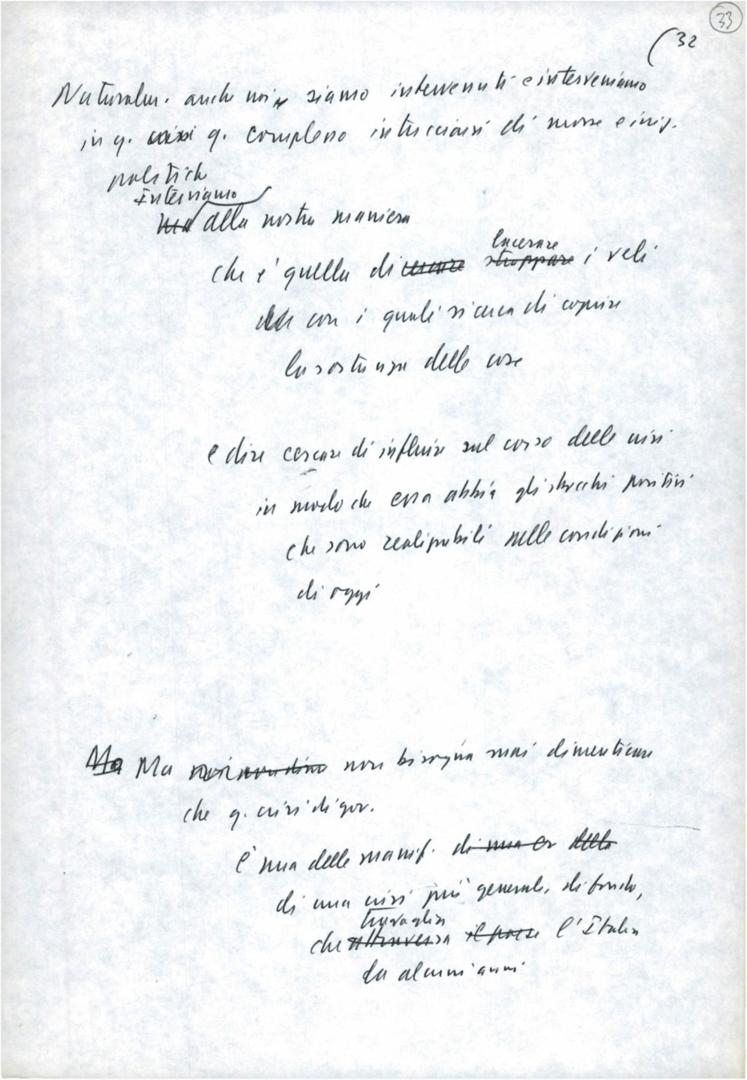 33
(32
Naturalm. anche noi siamo intervenuti e interveniamo
in q. crisi q. complesso intrecciarsi di mosse e iniz.
politich
Interviamo
Ma alla nostra maniera
lacerare
che e' quella di strappare i veli
con i quali si cerca di coprire
la sostanza delle cose
e dire cercare di influire sul corso delle crisi
in modo che essa abbia gli sbocchi positivi
che sono realizzabili nelle condizioni
di oggi
Ma Ma non bisogna mai dimenticare
che q. crisi di gov.
è una delle manif. di una
di una crisi più generale, di fondo,
travaglia
che attraversa il paese l'Italia
da alcuni anni